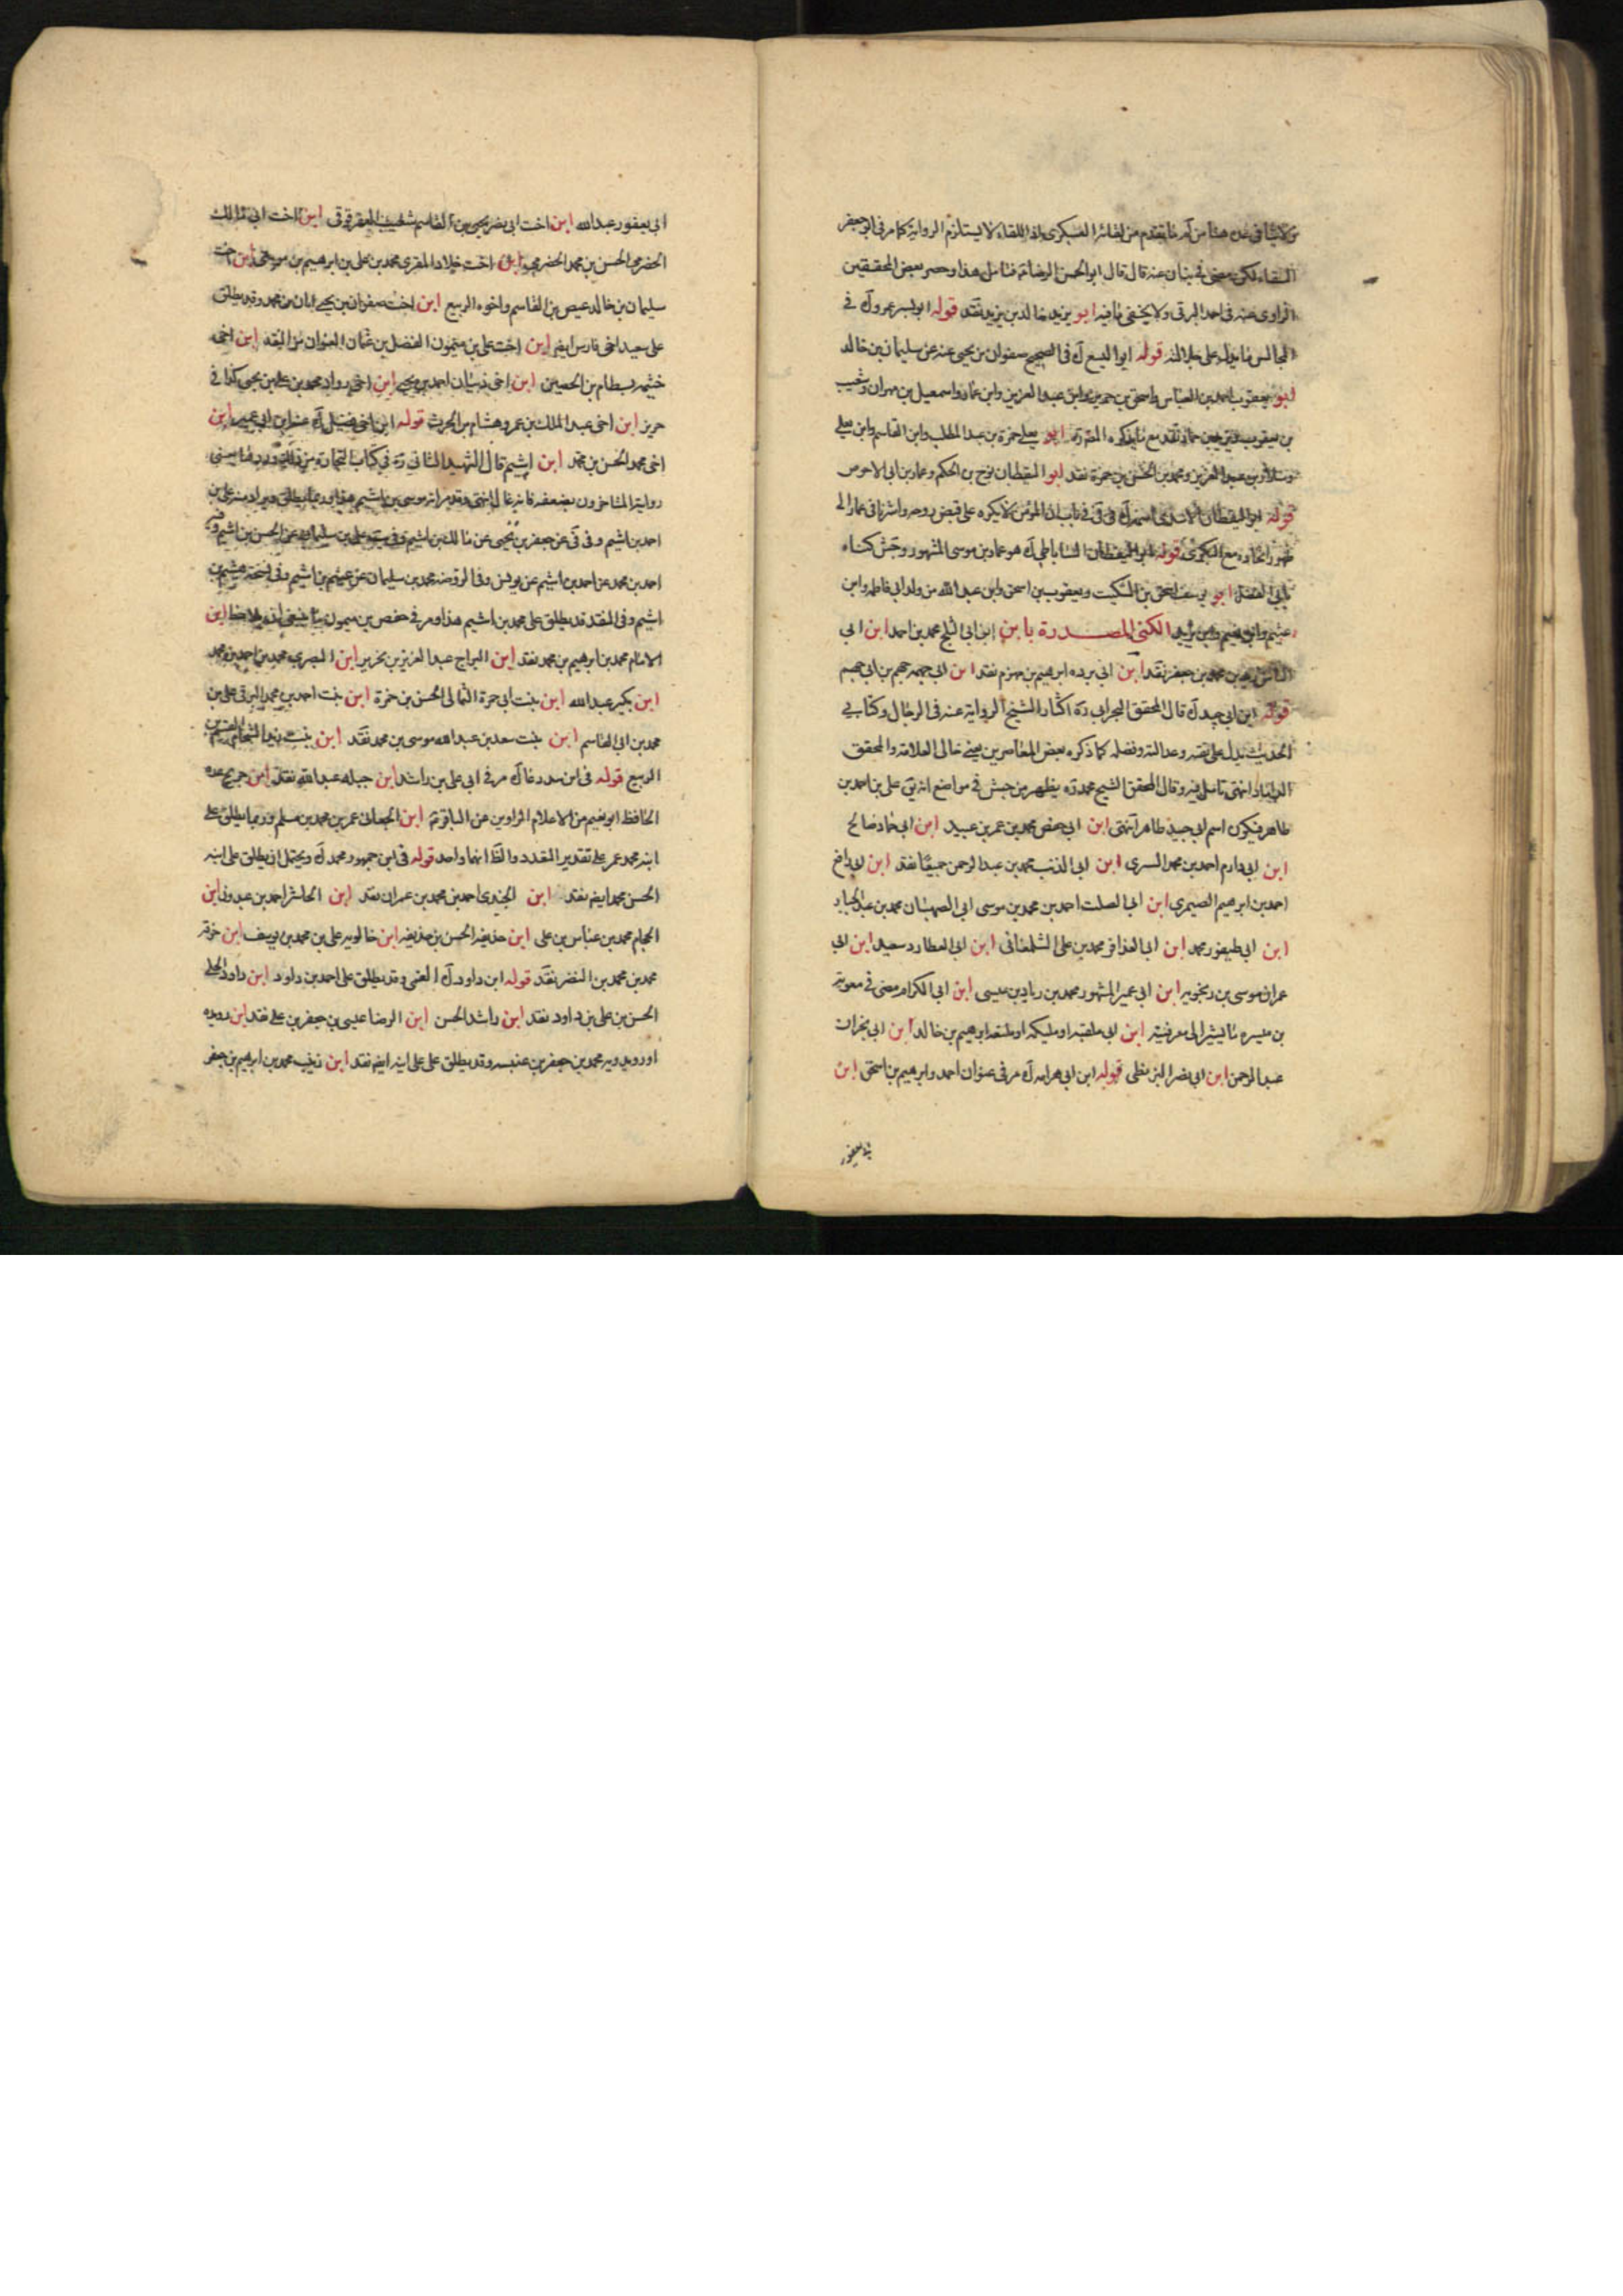 من لقائه العسكرى اذ اللقاء لا يستلزم الرواية كما مر فى ابو جعفر
السقاء لكن مضى فى بنان عنه قال قال ابو الحسن الرضا فتامل هذا وحصر بعض المحققين
الراوى عنه فى احمد البرقى ولا يخفى ما فيه ابو يزيد خالد بن يزيد نقد قوله ابو اليسر عمرو ك فى
المجالس ما يدل على جلالته قوله ابو اليسع ك فى الصحيح صفوان بن يحيى عنه عن سليمان بن خالد
ابو يعقوب احمد بن العباس واسحق بن عبد العزيز وابن عمار واسمعيل بن مهران وشعيب
بن يعقوب ابو يعلى حمزة بن عبد المطلب وابن القاسم وابن يعلى
وسلار بن عبد العزيز ومحمد بن الحسن بن حمزة نقد ابو اليقظان نوح بن الحكم وعمار بن ابى الاحوص
قوله ابو اليقظان فى باب ان المؤمن لا يكره على قبض روحه واشرنا فى عمار الى
اتحاده مع البكرى قوله ابو اليقظان الساباطى ك هو عمار بن موسى المشهور وجش كناه
بابى الفضل ابو يوسف اسحق بن السكيت ويعقوب بن اسحق وابن عبد الله من ولد ابى فاطمه وابن
عيثم وابن نعيم وابن يزيد الكنى المصدرة بابن ابن ابى الثلج محمد بن احمد ابن ابى
محمد بن جعفر نقد ابن ابى برده ابرهيم بن مهزم نقد ابن ابى جهمه جهم بن ابى جهم
قوله ابن ابى جيد ك قال المحقق البحرانى ره اكثار الشيخ الرواية عنه فى الرجال وكتابى
الحديث يدل على ثقته وعدالته وفضله كما ذكره بعض المعاصرين يعنى خالى العلامة والمحقق
الداماد انتهى تامل فيه وقال المحقق الشيخ محمد ره يظهر من جش فى مواضع انه يق على بن احمد بن
طاهر فيكون اسم ابى جيد طاهر انتهى ابن ابى حفص محمد بن عمر بن عبيد ابن ابى حماد صالح
ابن ابى دارم احمد بن محمد السرى ابن ابى الذئب محمد بن عبد الرحمن جميعا نقد ابن ابى رافع
احمد بن ابرهيم الصيمرى ابن ابى الصلت احمد بن محمد بن موسى ابى الصهبان محمد بن عبد الجبار
ابن ابى طيفور محمد ابن ابى العذافر محمد بن على الشلمغانى ابن ابى العطارد سعيد ابن ابى
عمران موسى بن رنجويه ابن ابى عمير المشهور محمد بن زياد بن عيسى ابن ابى الكرام مضى فى معوية
بن ميسره ما يشير الى معرفيته ابن ابى ملقيه او مليكه او ملعقه ابرهيم بن خالد ابن ابى نجران
عبد الرحمن ابن ابى نصر البزنطى قوله ابن ابى هراسه ك مر فى عنوان احمد وابرهيم بن اسحق ابن
ابى يعفور
ابى يعفور عبد الله ابن اخت ابى بصير يحيى بن القاسم شعيب العقرقوقى ابن اخت ابى مالك
الحضرمى الحسن بن محمد الحضرمى ابن اخت خلاد المقرى محمد بن على بن ابرهيم بن موسى ابن اخت
سليمان بن خالد عيص بن القاسم واخوه الربيع ابن اخت صفوان بن يحيى ابان بن محمد وقد يطلق
على سعيد اخى فارس ايضا ابن اخت على بن ميمون الفضل بن عثمان العنوان من النقد ابن اخى
خيثمه بسطام بن الحصين ابن اخى ذبيان احمد بن يحيى ابن اخى رواد محمد بن على بن يحيى كذا فى
حريز ابن اخى عبد الملك بن عمرو هشام بن الحرث قوله ابن اخى فضيل ك عنه ابن ابى عمير ابن
اخى محمد الحسن بن محمد ابن اشيم قال الشهيد الثانى ره فى كتاب التجارة
رواية المتاخرون بضعفه فانه غال انتهى وقد مر انه موسى بن اشيم هذا وربما يطلق ويراد منه على بن
احمد بن اشيم وفى فى عن جعفر بن يحيى عن مالك بن اشيم
احمد بن محمد عن احمد بن اشيم عن يونس وفى الروضه محمد بن سليمان عن عيثم بن اشيم وفى نسخة هيثم بن
اشيم وفى النقد قد يطلق على محمد بن اشيم هذا ومر فى حفص بن ميمون ما ينبغى ان يلاحظ ابن
الامام محمد بن ابرهيم بن محمد نقد ابن البراج عبد العزيز بن نحرير ابن البصرى محمد بن احمد بن محمد
ابن بكير عبد الله ابن بنت ابى حمزة الثمالى الحسن بن حمزة ابن بنت احمد بن محمد البرقى على بن
محمد بن ابى القاسم ابن بنت سعد بن عبد الله موسى بن محمد نقد ابن بنت زيد الشحام
الربيع قوله فى ابن بندر غاك مر فى ابى على بن راشد ابن جبله عبد الله نقد ابن جريح عده
الحافظ ابو نعيم من الاعلام الراوين عن الباقر ع ابن الجعابى عمر بن محمد بن مسلم وربما يطلق على
ابنه محمد عمر على تقدير التعدد والظ انهما واحد قوله فى ابن جمهور محمد ك ويحتمل ان يطلق على ابنه
الحسن محمد ايض نقد ابن الجندى احمد بن محمد بن عمران نقد ابن الحاشر احمد بن عبدون ابن
الحجام محمد بن عباس بن على ابن حذيفه الحسن بن حذيفه ابن خالويه على بن محمد بن يوسف ابن خرقة
محمد بن محمد بن النضر نقد قوله ابن داود ك القمى وقد يطلق على احمد بن داود ابن داود الحلى
الحسن بن على بن داود نقد ابن راشد الحسن ابن الرضا عيسى بن جعفر بن على نقد ابن رويده
او رويدويه محمد بن جعفر بن عنبسه وقد يطلق على على ابنه ايض نقد ابن زينب محمد بن ابرهيم بن جعفر